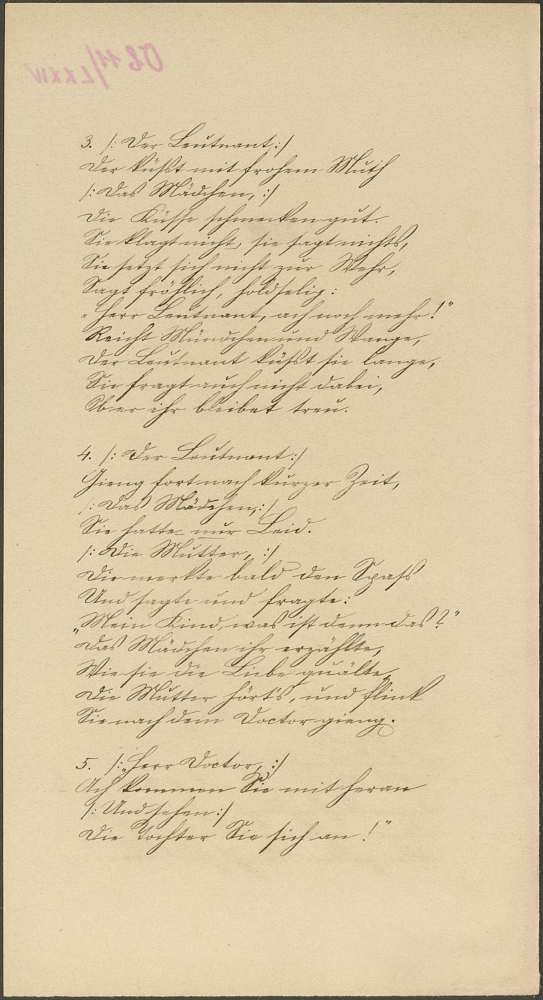 3. /: Der Leutnant, :/
Der küßt mit frohem Muth
/: Das Mädchen, :/
Die Küsse schmecken gut.
Sie klagt nicht, sie sagt nichts,
Sie setzt sich nicht zur Wehr,
Sagt fröhlich, holdselig:
„Herr Leutnant, ach noch mehr!"
Reicht Mündchen und Wange,
Der Leutnant küßt sie lange,
Sie fragt auch nicht dabei,
Ob er ihr bleibet treu.
4. /: Der Leutnant :/
Gieng fort nach kurzer Zeit,
/: Das Mädchen, :/
Sie hatte nur Leid.
/: Die Mutter, :/
Die merkte bald den Spaß
Und sagte und fragte:
„Mein Kind, was ist denn das?"
Das Mädchen ihr erzählte,
Wie sie die Liebe quälte,
Die Mutter hört's, und flink
Sie nach dem Doctor gieng.
5. /: „Herr Doctor, :/
Ach kommen Sie mit heran
/: Und sehen :/
Die Tochter Sie sich an!"